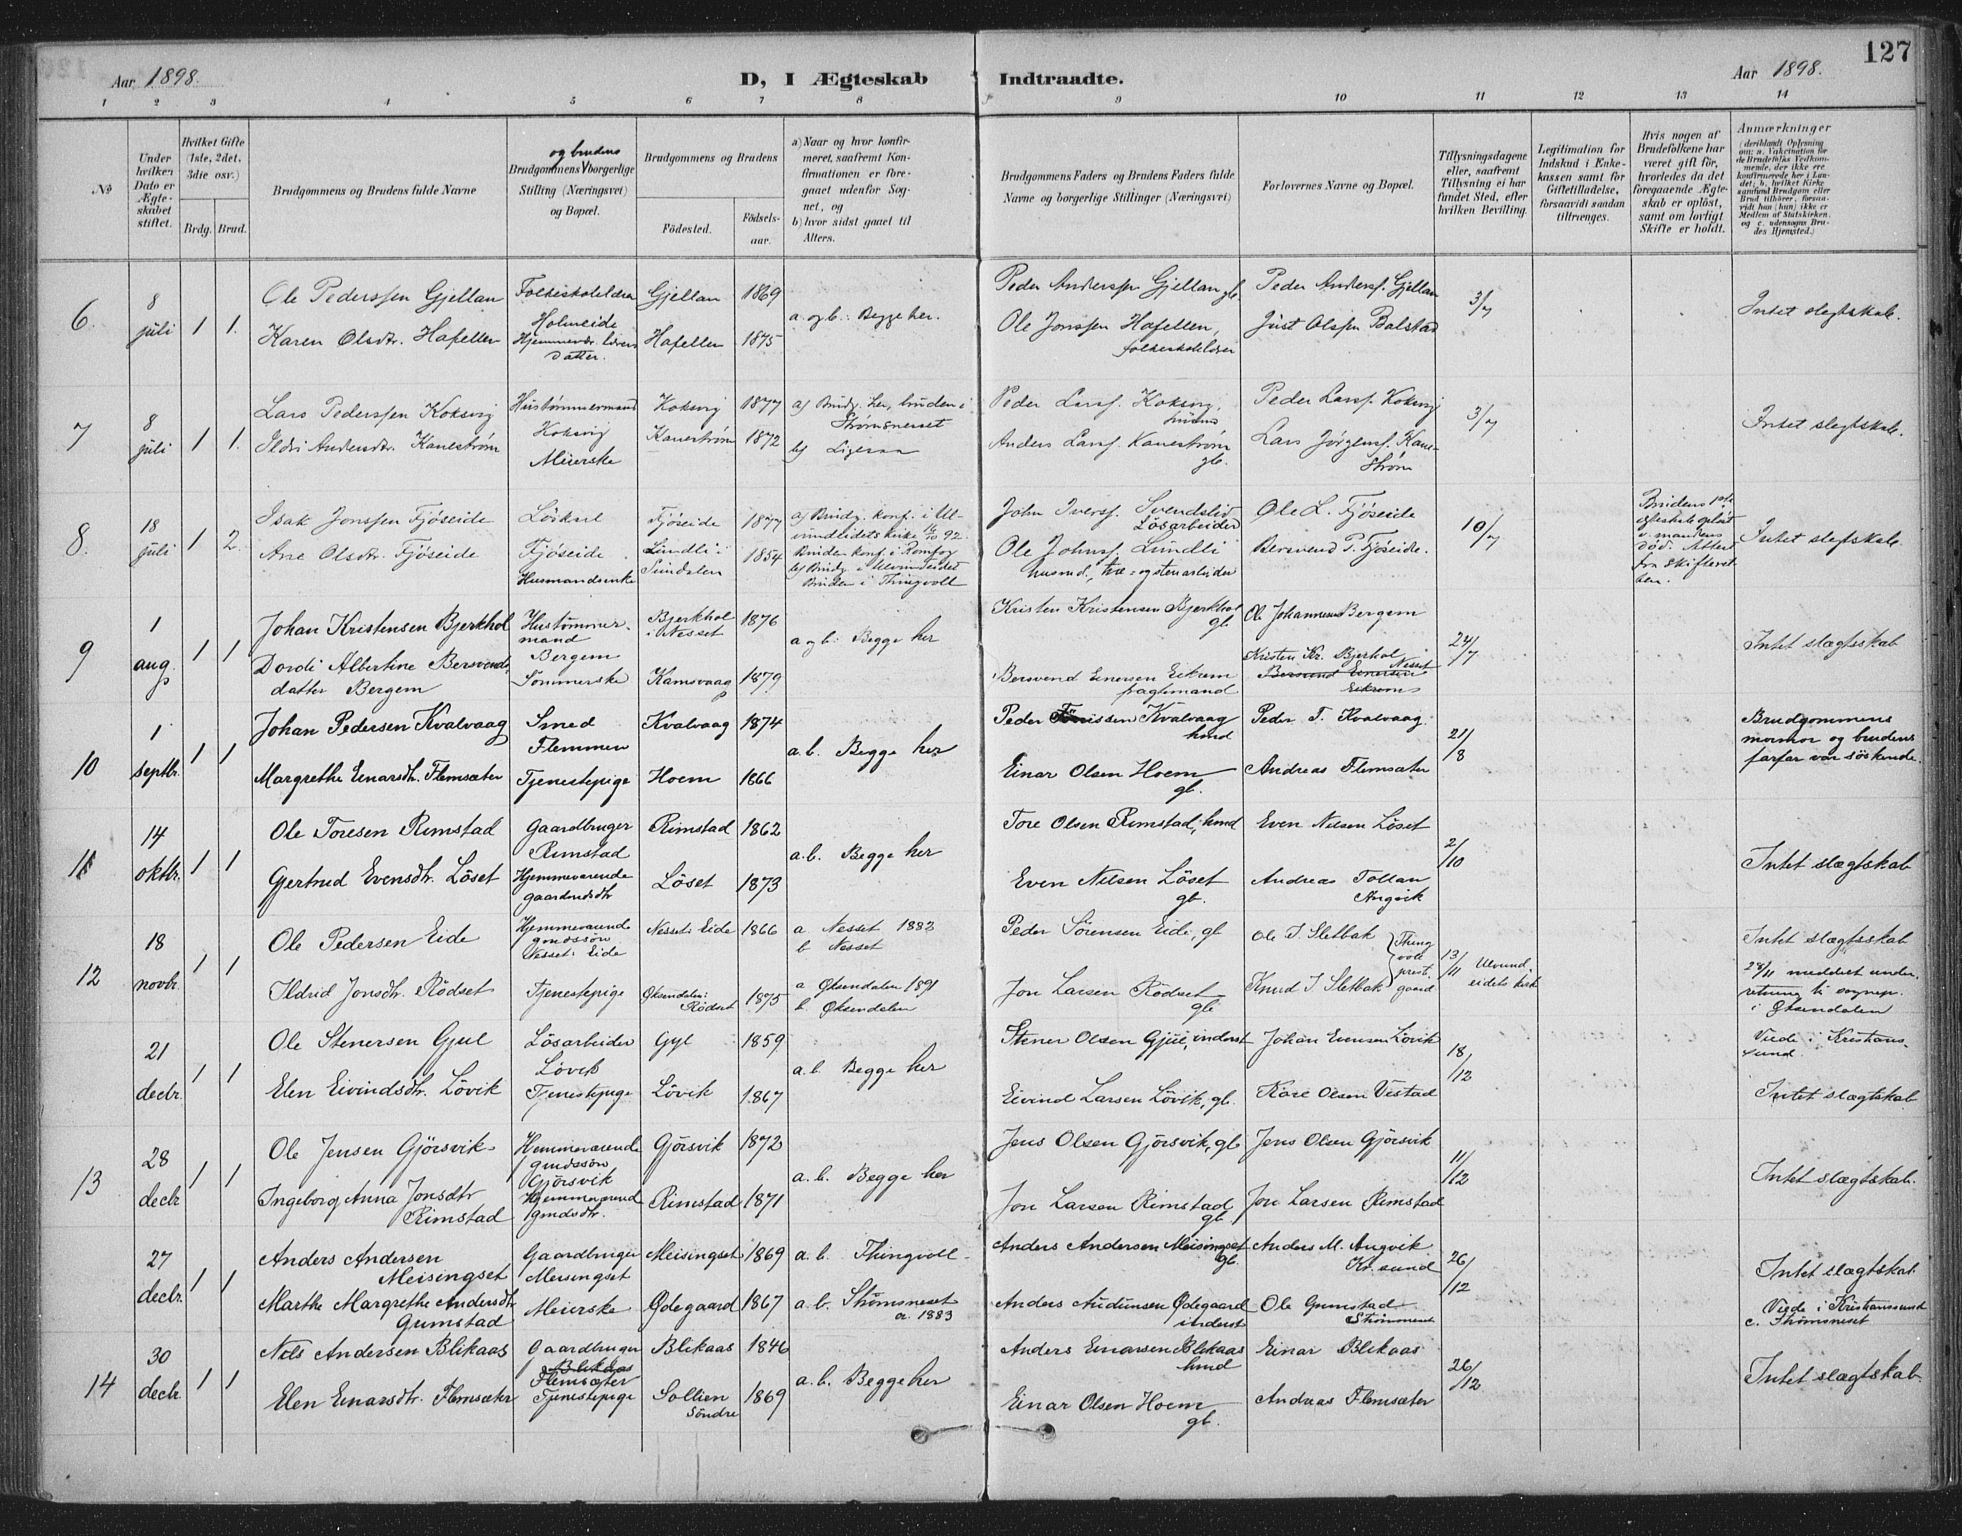 127
Aar 1898. D, I Ægteskab Indtraadte. Aar 1898.
1 2 3 4 5 6 7 8 9 10 11 12 13 14
No
Under hvilken Dato er Ægteskabet stiftet.
Hvilket Gifte (1ste, 2det, 3die osv.)
Brdg. Brud.
Brudgommens og Brudens fulde Navne
og brudens
Brudgommens borgerlige Stilling (Næringsvei) og Bopæl.
Brudgommens og Brudens
Fødested. Fødselsaar.
a) Naar og hvor konfirmeret, saafremt Konfirmationen er foregaaet udenfor Sognet, og
b) hvor sidst gaaet til Alters.
Brudgommens Faders og Brudens Faders fulde Navne og borgerlige Stillinger (Næringsvei)
Forlovernes Navne og Bopæl.
Tillysningsdagene eller, saafremt Tillysning ei har fundet Sted, efter hvilken Bevilling.
Legitimation for Indskud i Enkekassen samt for Giftetilladelse, forsaavidt saadan tiltrænges.
Hvis nogen af Brudefolkene har været gift før, hvorledes da det foregaaende Ægteskab er opløst, samt om lovligt Skifte er holdt.
Anmærkninger (deriblandt Oplysning om: a. Vakcination for de Brudefolks Vedkommende, der ikke ere konfirmerede her i Landet; b. hvilket Kirkesamfund Brudgom eller Brud tilhører, forsaavidt han (hun) ikke er Medlem af Statskirken, og c. udensogns Brudes Hjemsted.)
6. 8 juli 1 1.
Ole Pederssen Gjellan
Gjellan 1869
Karen Olsdtr. Hafellen
Holmeide
Hafellen 1875
a. og b.: Begge her.
Peder Anderssen Gjellan gb.
Ole Jonssen Hafellen, folkeskolelærer
Peder Andersf. Gjellan
Just Olssen Bolstad
3/7
Intet slegtskab.
7 8 juli 1 1.
Lars Pederssen Koksvig
Hustømmermand Koksvig
Koksvig 1877
Ildri Andersdtr. Kanestrøm
Meierske
Kanestrøm 1872
a) Brudg. her, bruden i Strømsnesset
b) Ligesaa
Peder Larsf. Koksvig, husmd
Anders Larsf. Kanestrøm gb.
Peder Larsf. Koksvig
Lars Jørgensf. Kanestrøm
3/7
Intet slegtskab.
8. 18 juli 1 2.
Isak Jonssen Fjøseide
Løskarl Fjøseide
Fjøseide 1877
Ane Olsdtr. Fjøseide
Husmandsenke
Lundli i Sundalen 1854
a) Brudg. konf. i Ulvundeidets kirke 92.
Bruden konf. i Romfog
b) Brudg. i Ulvundeidet
Bruden i Thingvoll
John Iversf. Svendslid Løsarbeider
Ole Johnsf. Lundli husmd., træ- og stenarbeider
Ole L. Fjøseide
Bersvend P. Fjøseide.
10/7
Brudens 1ste egteskab opløst v. mandens død. Attest fra skifteretten.
Intet slegtskab.
9 1 aug. 1 1
Johan Kristensen Bjerkhol
Hustømmermand Bergem
Bjerkhol i Nesset 1876
Dordi Albertine Bersvendsdatter Bergem
Sømmerske
Kamsvaag 1879
a og b: Begge her
Kristen Kristensen Bjerkhol gb.
Bersvend Einersen Eikrem fragtmand
Ole Johannesen Bergem
Kristen Kr. Bjerkhol Nesset
Bersvend Einersen Eikrem
24/7
Intet slægtskab
10 1 septbr. 1 1
Johan Pedersen Kvalvaag
Smed Flemmen
Kvalvaag 1874
Margrethe Einarsdtr. Flemsæter
Tjenestepige
Hoem 1866
a. b. Begge her
Peder Tønissen Kvalvaag hmd
Einar Olsen Hoem gb.
Peder T. Kvalvaag.
Andreas Flemsæter
21/8
Brudgommens mormor og brudens farfar var søskende.
11 14 oktbr. 1 1
Ole Toresen Rimstad
Gaardbruger Rimstad
Rimstad 1862
Gjertrud Evensdtr. Løset
Hjemmeværende gaardmdsdtr
Løset 1873
a. b. Begge her
Tore Olsen Rimstad, hmd
Even Nilsen Løset gb.
Even Nilsen Løset
Andreas Tollan Angvik
2/10
Intet slægtskab
12 18 novbr. 1 1
Ole Pedersen Eide
Hjemmeværend gmdssøn Nesset: Eide
Nesset: Eide 1866
Ildrid Jonsdtr. Rødset
Tjenestepige
Øksendalen: Rødset 1875
a Nesset 1882
b Nesset
a Øksendalen 1891
b. Øksendalen
Peder Sørensen Eide, gb
Jon Larsen Rødset gb
Ole I Sletbak
Knud I Sletbak
Thingvoll prestgaard
13/11
Ulvundeidets kirke
Intet slægtskab
28/11 meddelt underretning til sognep. i Øksendalen
21 decbr. 1 1
Ole Stenersen Gjul
Løsarbeider Løvik
Gyl 1859
Elen Eivindsdtr. Løvik
Tjenestepige
Løvik 1867
a. b. Begge her
Stener Olsen Gjul, inderst
Eivind Larsen Løvik, gb.
Johan Evensen Løvik
Kåre Olsen Vestad
18/12
Viede i Kristianssund
Intet slægtskab
13 28 decbr 1 1
Ole Jensen Gjørsvik
Hjemmeværende gmdssøn Gjørsvik
Gjørsvik 1872
Ingeborg Anna Jonsdtr Rimstad
Hjemmeværend gmdsdtr.
Rimstad 1871
a. b. Begge her
Jens Olsen Gjørsvik, gb
Jon Larsen Rimstad gb.
Jens Olsen Gjørsvik
Jon Larsen Rimstad
11/12
Intet slægtskab.
27 decbr. 1 1
Anders Andersen Meisingset
Gaardbruger Meisingset
Meisingset 1869
a. b. Thingvoll
Marthe Margrethe Andersdtr Gumstad
Meierske
Ødegaard 1867
a. b. Strømsneset a. 1883
Anders Andersen Meisingset gb.
Anders Audunsen Ødegaard inderst
Anders M. Angvik Kr.sund
Ole Gumstad Strømsneset
26/12
Intet slægtskab.
Viede i Kristianssund
c. Strømsneset
14 30 decbr. 1 1
Nils Andersen Blikaas
Gaardbruger Blikaas Flemsæter
Blikaas 1846
Elen Einarsdtr. Flemsæter
Tjenestepige
Sollien Søndre 1869
a. b. Begge her
Anders Einarsen Blikaas hmd
Einar Olsen Hoem gb.
Einar Blikaas
Andreas Flemsæter
26/12
Intet slægtskab.